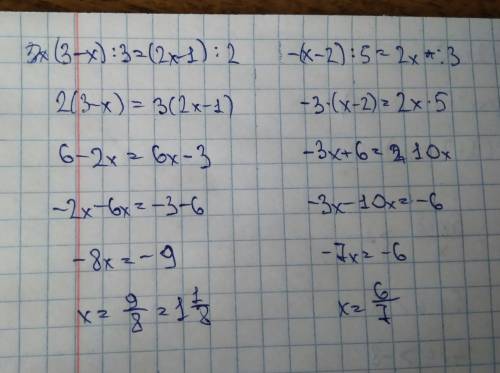 (3-x):3=(2x-1):2
2(3-x)=3(2x-1)
6-2x=6x-3
-2x-6x=-3-6
-8x=-9
x=9/8=1 1/8
-(x-2):5=2x:3
-3·(x-2)=2x·5
-3x+6=10x
-3x-10x=-6
-7x=-6
x=6/7